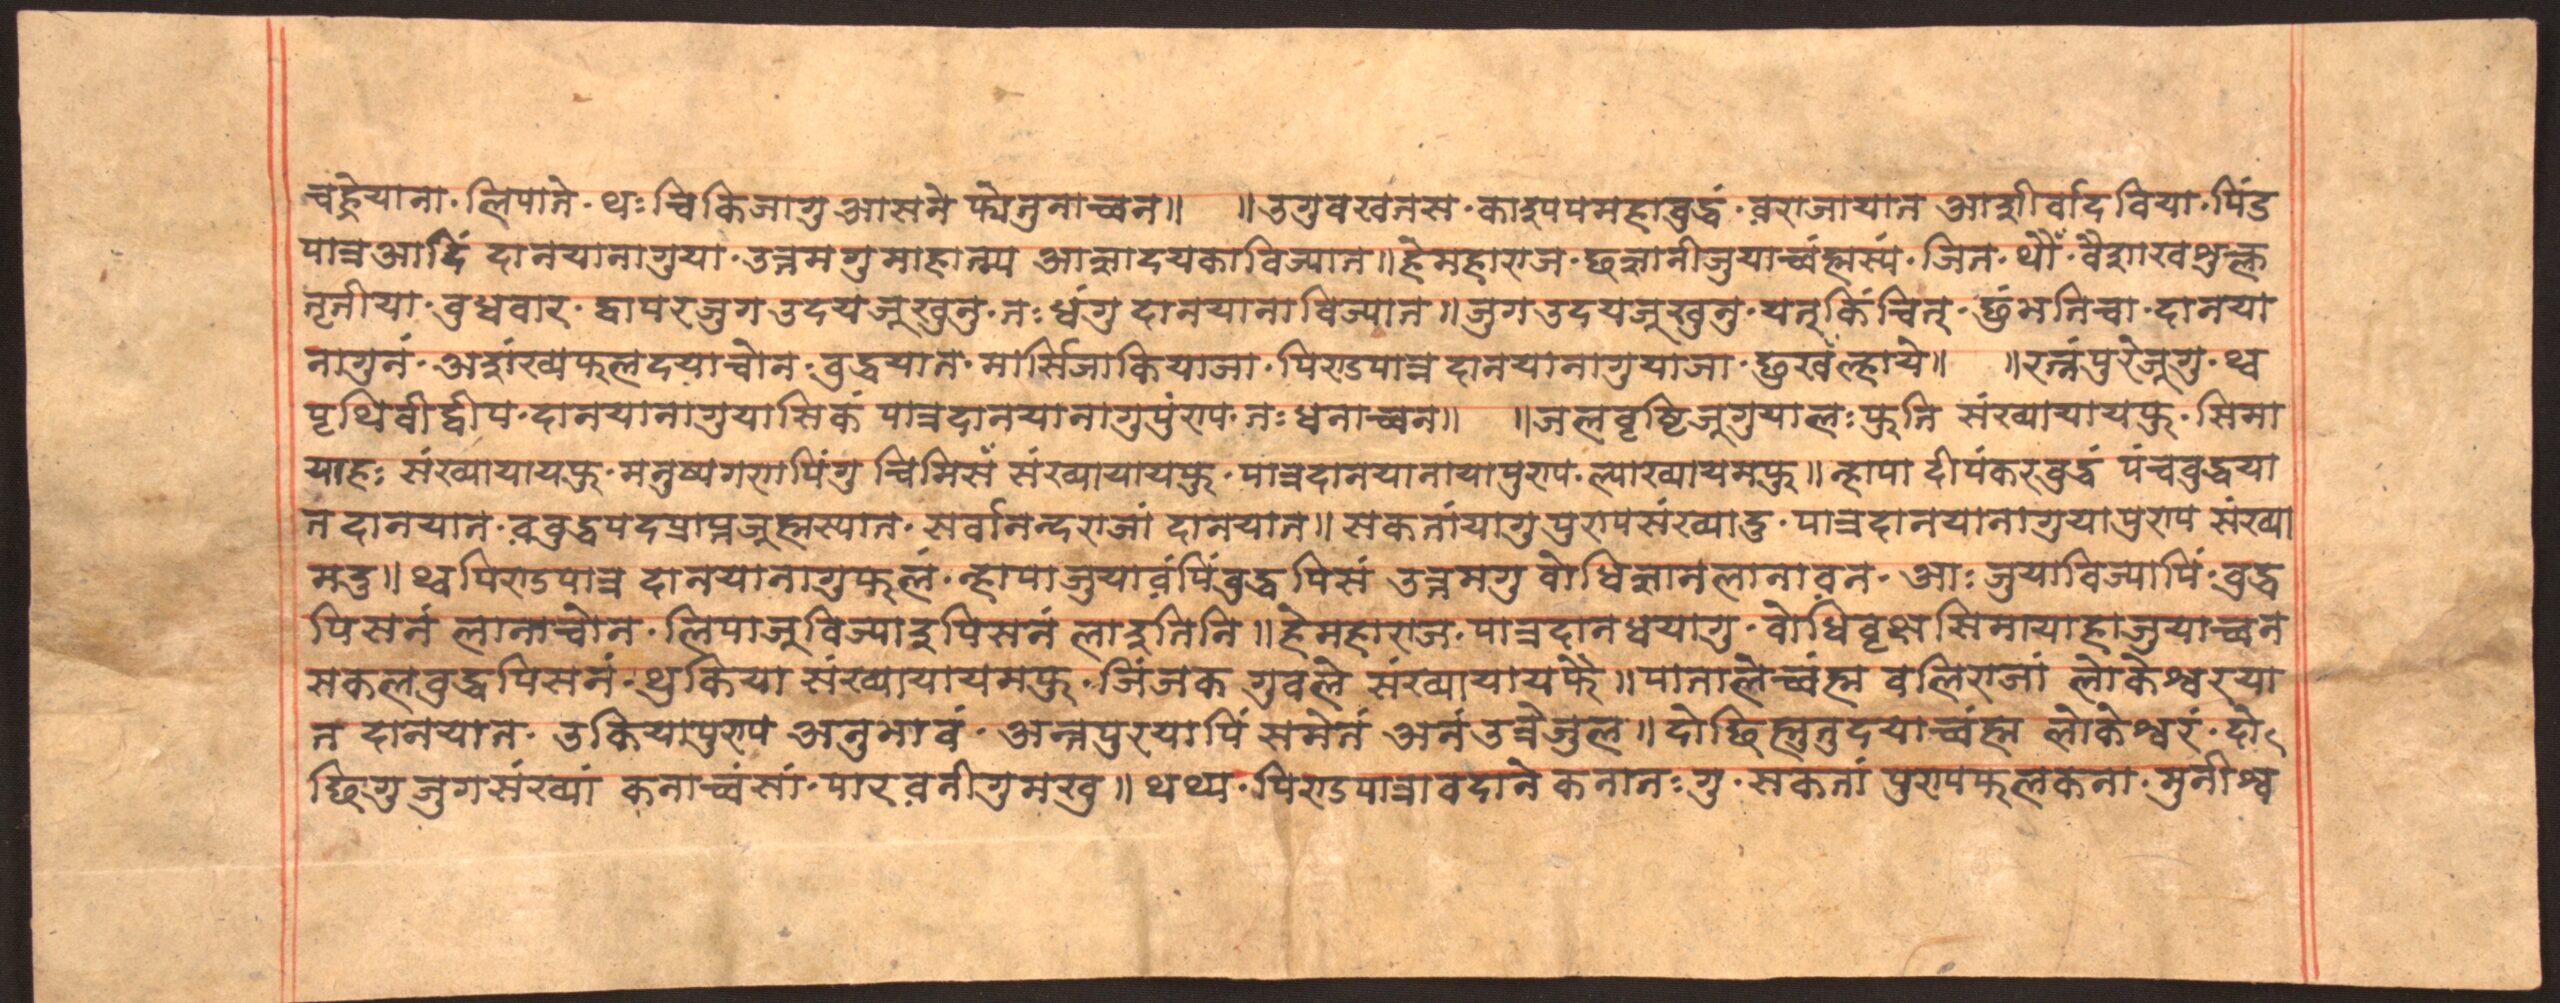 चहेयाना· लिपाते· थः चिकिजागु आसने फ्येतुनाच्वन॥ ॥उगुवखतस· काश्यपमहाबुद्धं· व़राजायात आशीर्वादविया· पिंड
पात्रआदिं दानयानागुया· उत्तमगु माहात्म्य आज्ञादयकाविज्यात॥ हेमहाराज· छज्ञानीजुयाच्वंह्मस्यं· जित· थौं· वैशाखशुक्ल
तृतीया· बुधवार· द्वापरजुगउदयजूखुनु· तःधंगु दानयानाविज्यात॥ जुगउदयजूखुनु· यत्‌किंचित्‌· छुंभतिचा· दानया
नागुनं· अशंख्यफलदयाच्वोन· बुद्धयात· मार्सिजाकियाजा· पिण्डपात्र दानयानागुयाजा· छुखँल्हाये॥ ॥रत्नंपुरेजूगु· थ्व
पृथिवीद्वीप· दानयानागुयासिकं पात्रदानयानागुपुंण्य· तःधनाच्वन॥ ॥जलवृष्टिजूगुयालः फुति संख्यायायफु· सिमा
याहः संख्यायायफु· मनुष्यगणपिंगु चिमिसँ संख्यायायफु· पात्रदानयानायापुण्य· ल्याख्यायमफु॥ न्हापा दीपंकरबुद्धं पंचबुद्धया
त दानयात· व़बुद्धपदप्राप्तजूह्मस्यात· सर्वानन्दराजां दानयात॥ सकतांयागु पुण्यसंख्यादु· पात्रदानयानागुयापुण्य संख्या
मदु॥ थ्वपिण्डपात्र दानयानागुफलं· न्हापाजुयाव़ंपिंबुद्धपिसं उत्तमगु वोधिज्ञानलानाव़न· आः जुयाविज्यापिं· बुद्ध
पिसनं लानाच्वोन· लिपाजुविज्याइपिसनं लाइतिनि॥ हेमहाराज· पात्रदानधयागु· वोधिवृक्षसिमायाहाजुयाच्वन
सकलबुद्धपिसनं· थुकिया संख्यायायमफु· जिंजक गुवले संख्यायायफै॥ पातालेच्वंह्म वलिराजां लोकेश्वरया
त दानयात· उकियापुण्य अनुभावं· अन्तपुरयापिं समेतं अनंउत्रेजुल॥ दोछिह्लुतुदयाच्वंह्म लोकेश्वरं· दो
छिगु जुगसंख्यां कनाच्वंसां· पारव़नीगुमखु॥ थथ्य· पिण्डपात्रावदाने कनातःगु· सकतां पुण्यफलकना· मुनीश्व